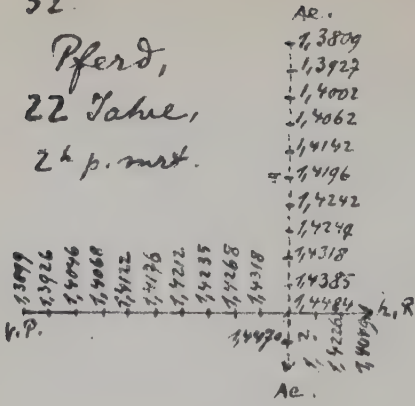 52.
Pferd,
22 Jahre,
2h p. mrt.
Ae.
1,3809
1,3927
1,4002
1,4062
1,4142
1,4196
1,4242
1,4318
1,4385
1,4484
1,3926
1,4046
1,4068
1,4122
1,4176
1,4212
1,4235
1,4268
1,4318
v.P.
h.P.
1,4470
z.
Ae.